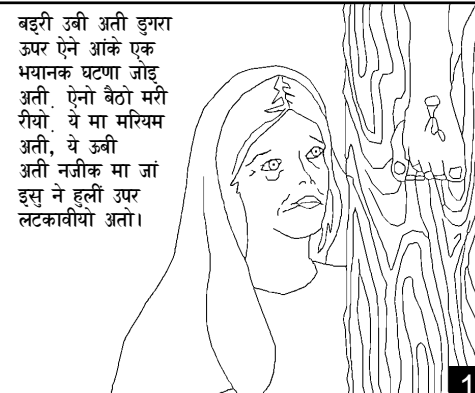 बइरी उबी अती डुगरा
ऊपर ऐने आंके एक
भयानक घटणा जोइ
अती. ऐनो बैठो मरी
रीयो. ये मा मरियम
अती, ये ऊबी
अती नजीक मा जां
इसु ने हुलीं उपर
लटकावीयो अतो।
1